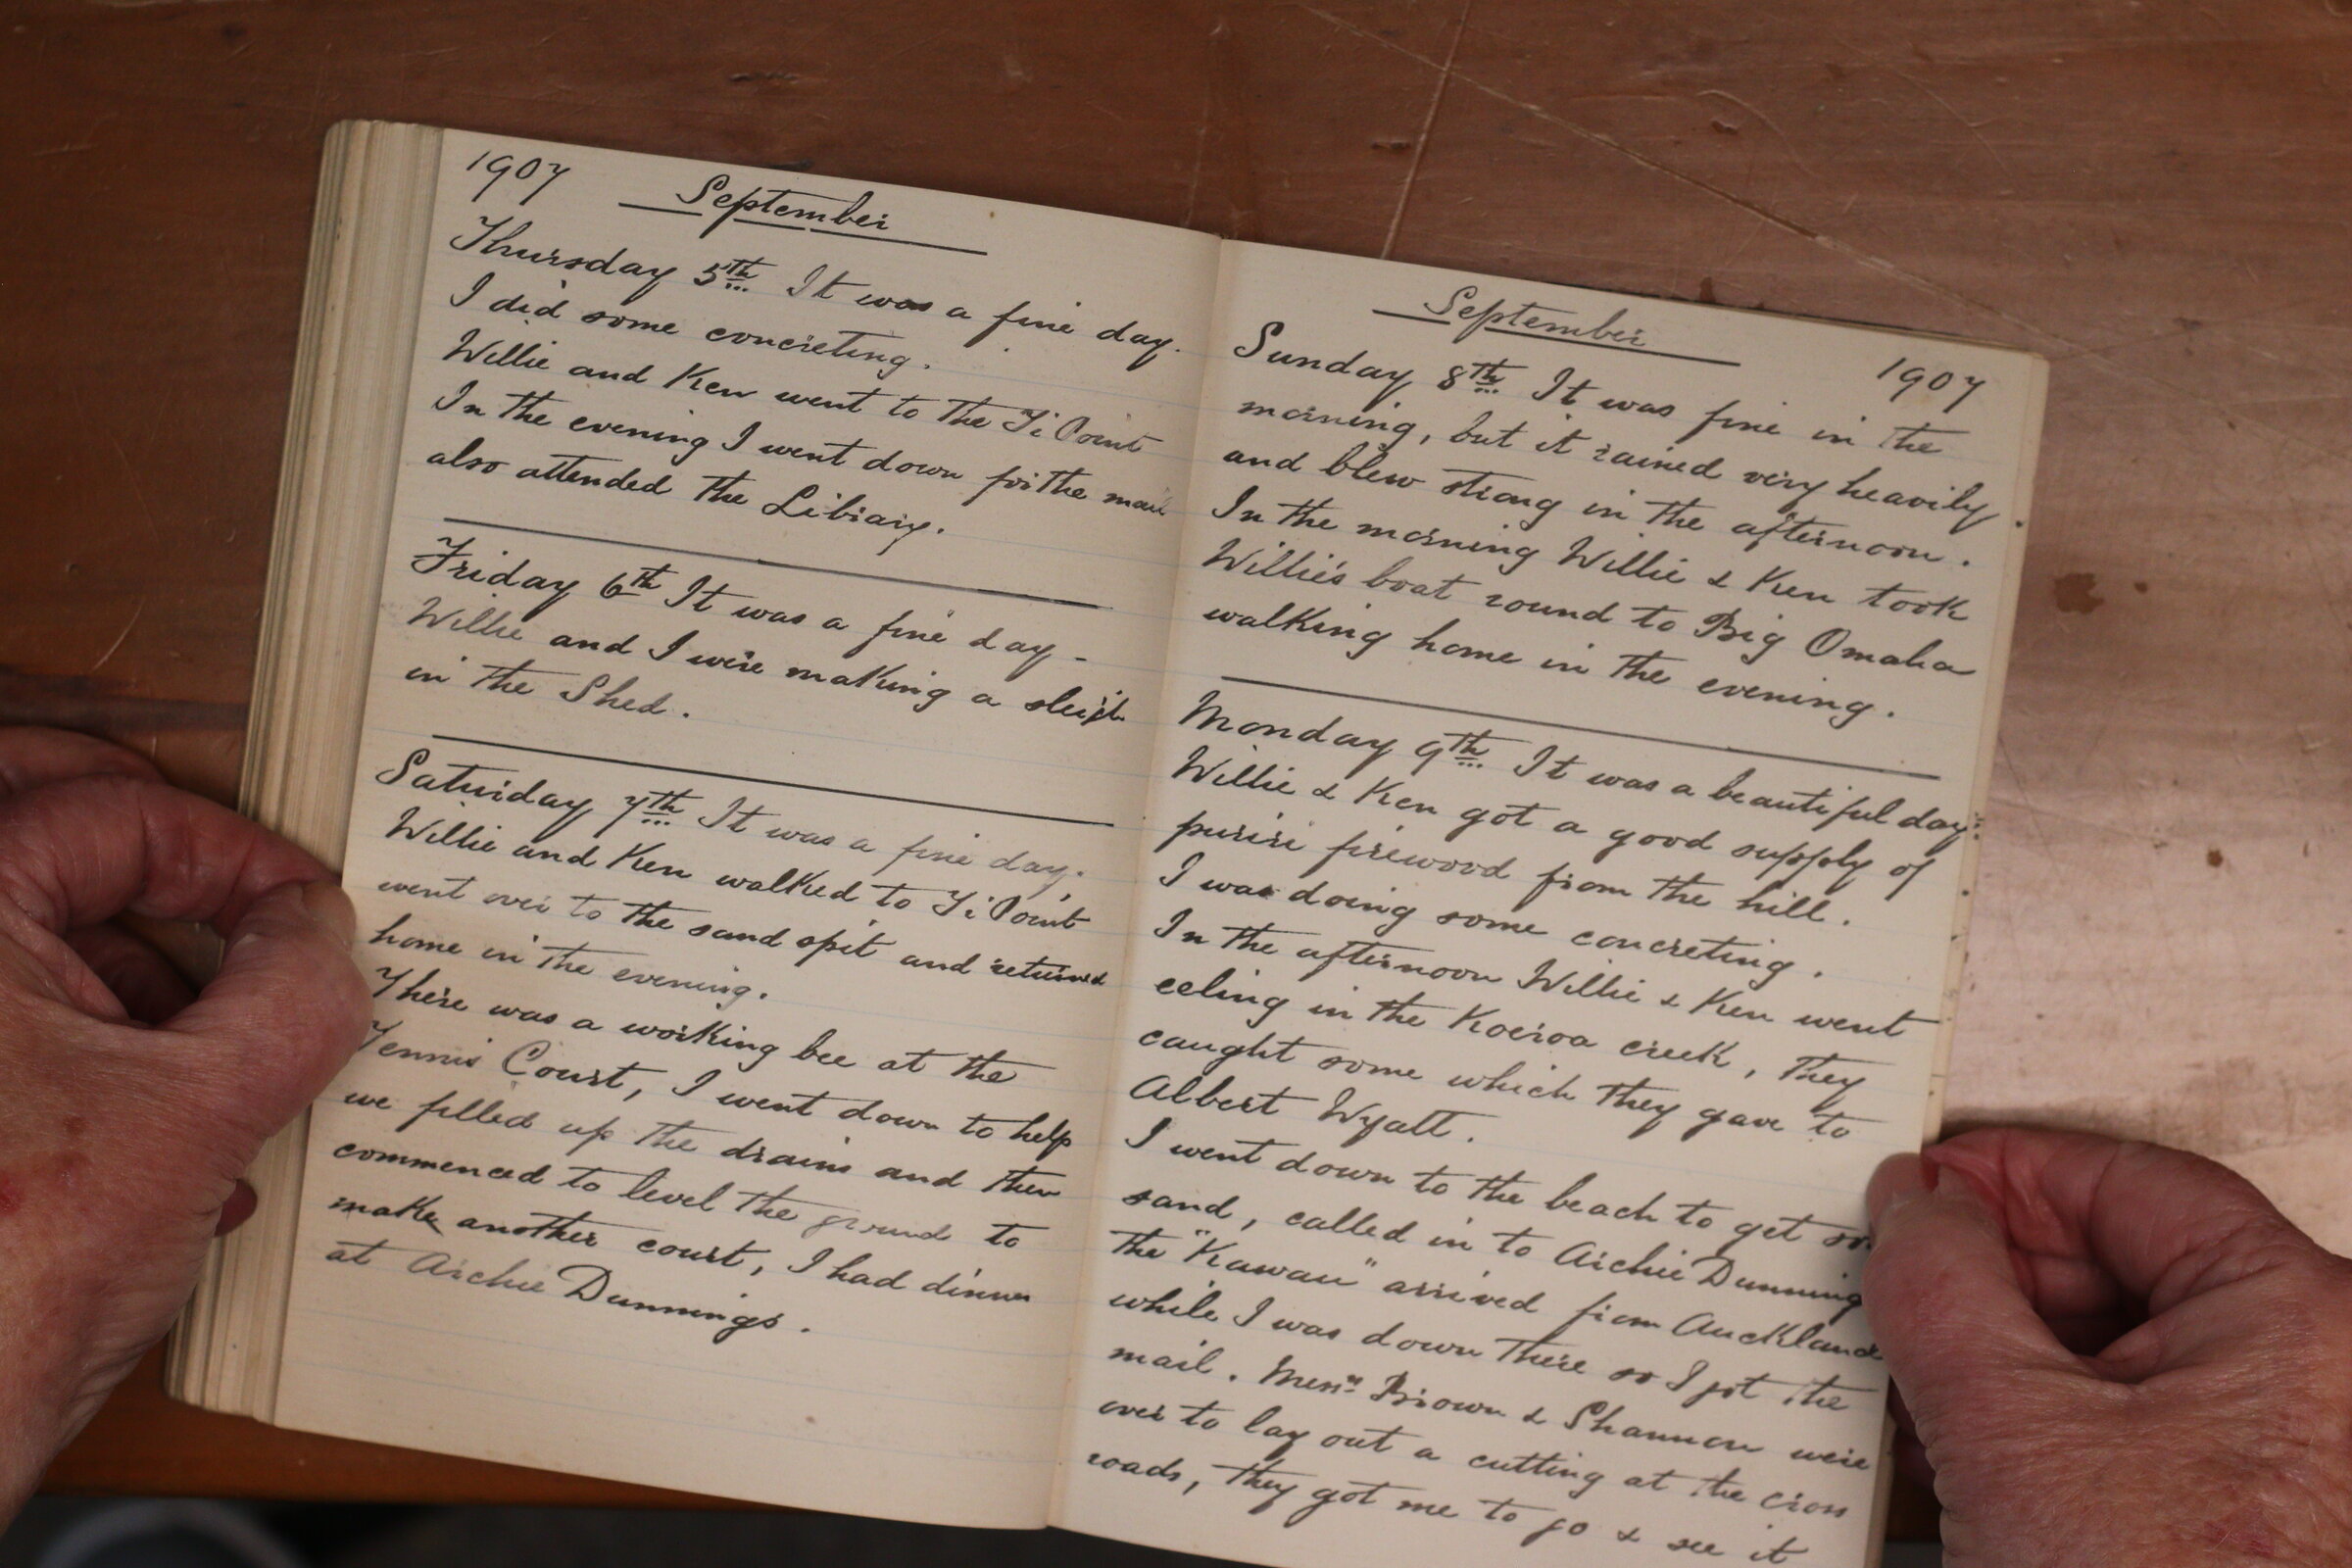 1907 September
Thursday 5th It was a fine day.
I did some concreting.
Willie and Ken went to the Ti Point
In the evening I went down for the mail
also attended the Library.
Friday 6th It was a fine day -
Willie and I were making a sleigh
in the Shed.
Saturday 7th It was a fine day.
Willie and Ken walked to Ti Point
went over to the sand spit and returned
home in the evening.
There was a working bee at the
Tennis Court, I went down to help
we filled up the drains and then
commenced to level the ground to
make another court, I had dinner
at Archie Dunnings.
September 1907
Sunday 8th It was fine in the
morning, but it rained very heavily
and blew strong in the afternoon.
In the morning Willie & Ken took
Willie's boat round to Big Omaha
walking home in the evening.
Monday 9th It was a beautiful day.
Willie & Ken got a good supply of
puriri firewood from the hill.
I was doing some concreting.
In the afternoon Willie & Ken went
eeling in the Koeroa creek, they
caught some which they gave to
Albert Wyatt.
I went down to the beach to get
sand, called in to Archie Dunning
the "Kawau" arrived from Auckland
while I was down there so I got the
mail. Messrs Brown & Shannon were
over to lay out a cutting at the cross
roads, they got me to go & see it